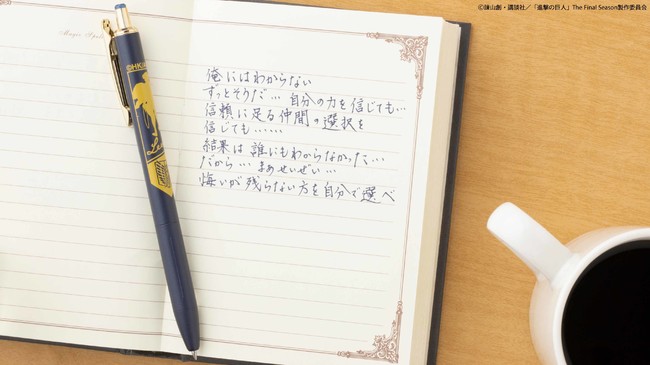 ©諫山創・講談社／「進撃の巨人」The Final Season製作委員会
俺にはわからない
ずっとそうだ… 自分の力を信じても…
信頼に足る仲間の選択を
信じても……
結果は誰にもわからなかった…
だから… まぁせいぜい…
悔いが残らない方を自分で選べ